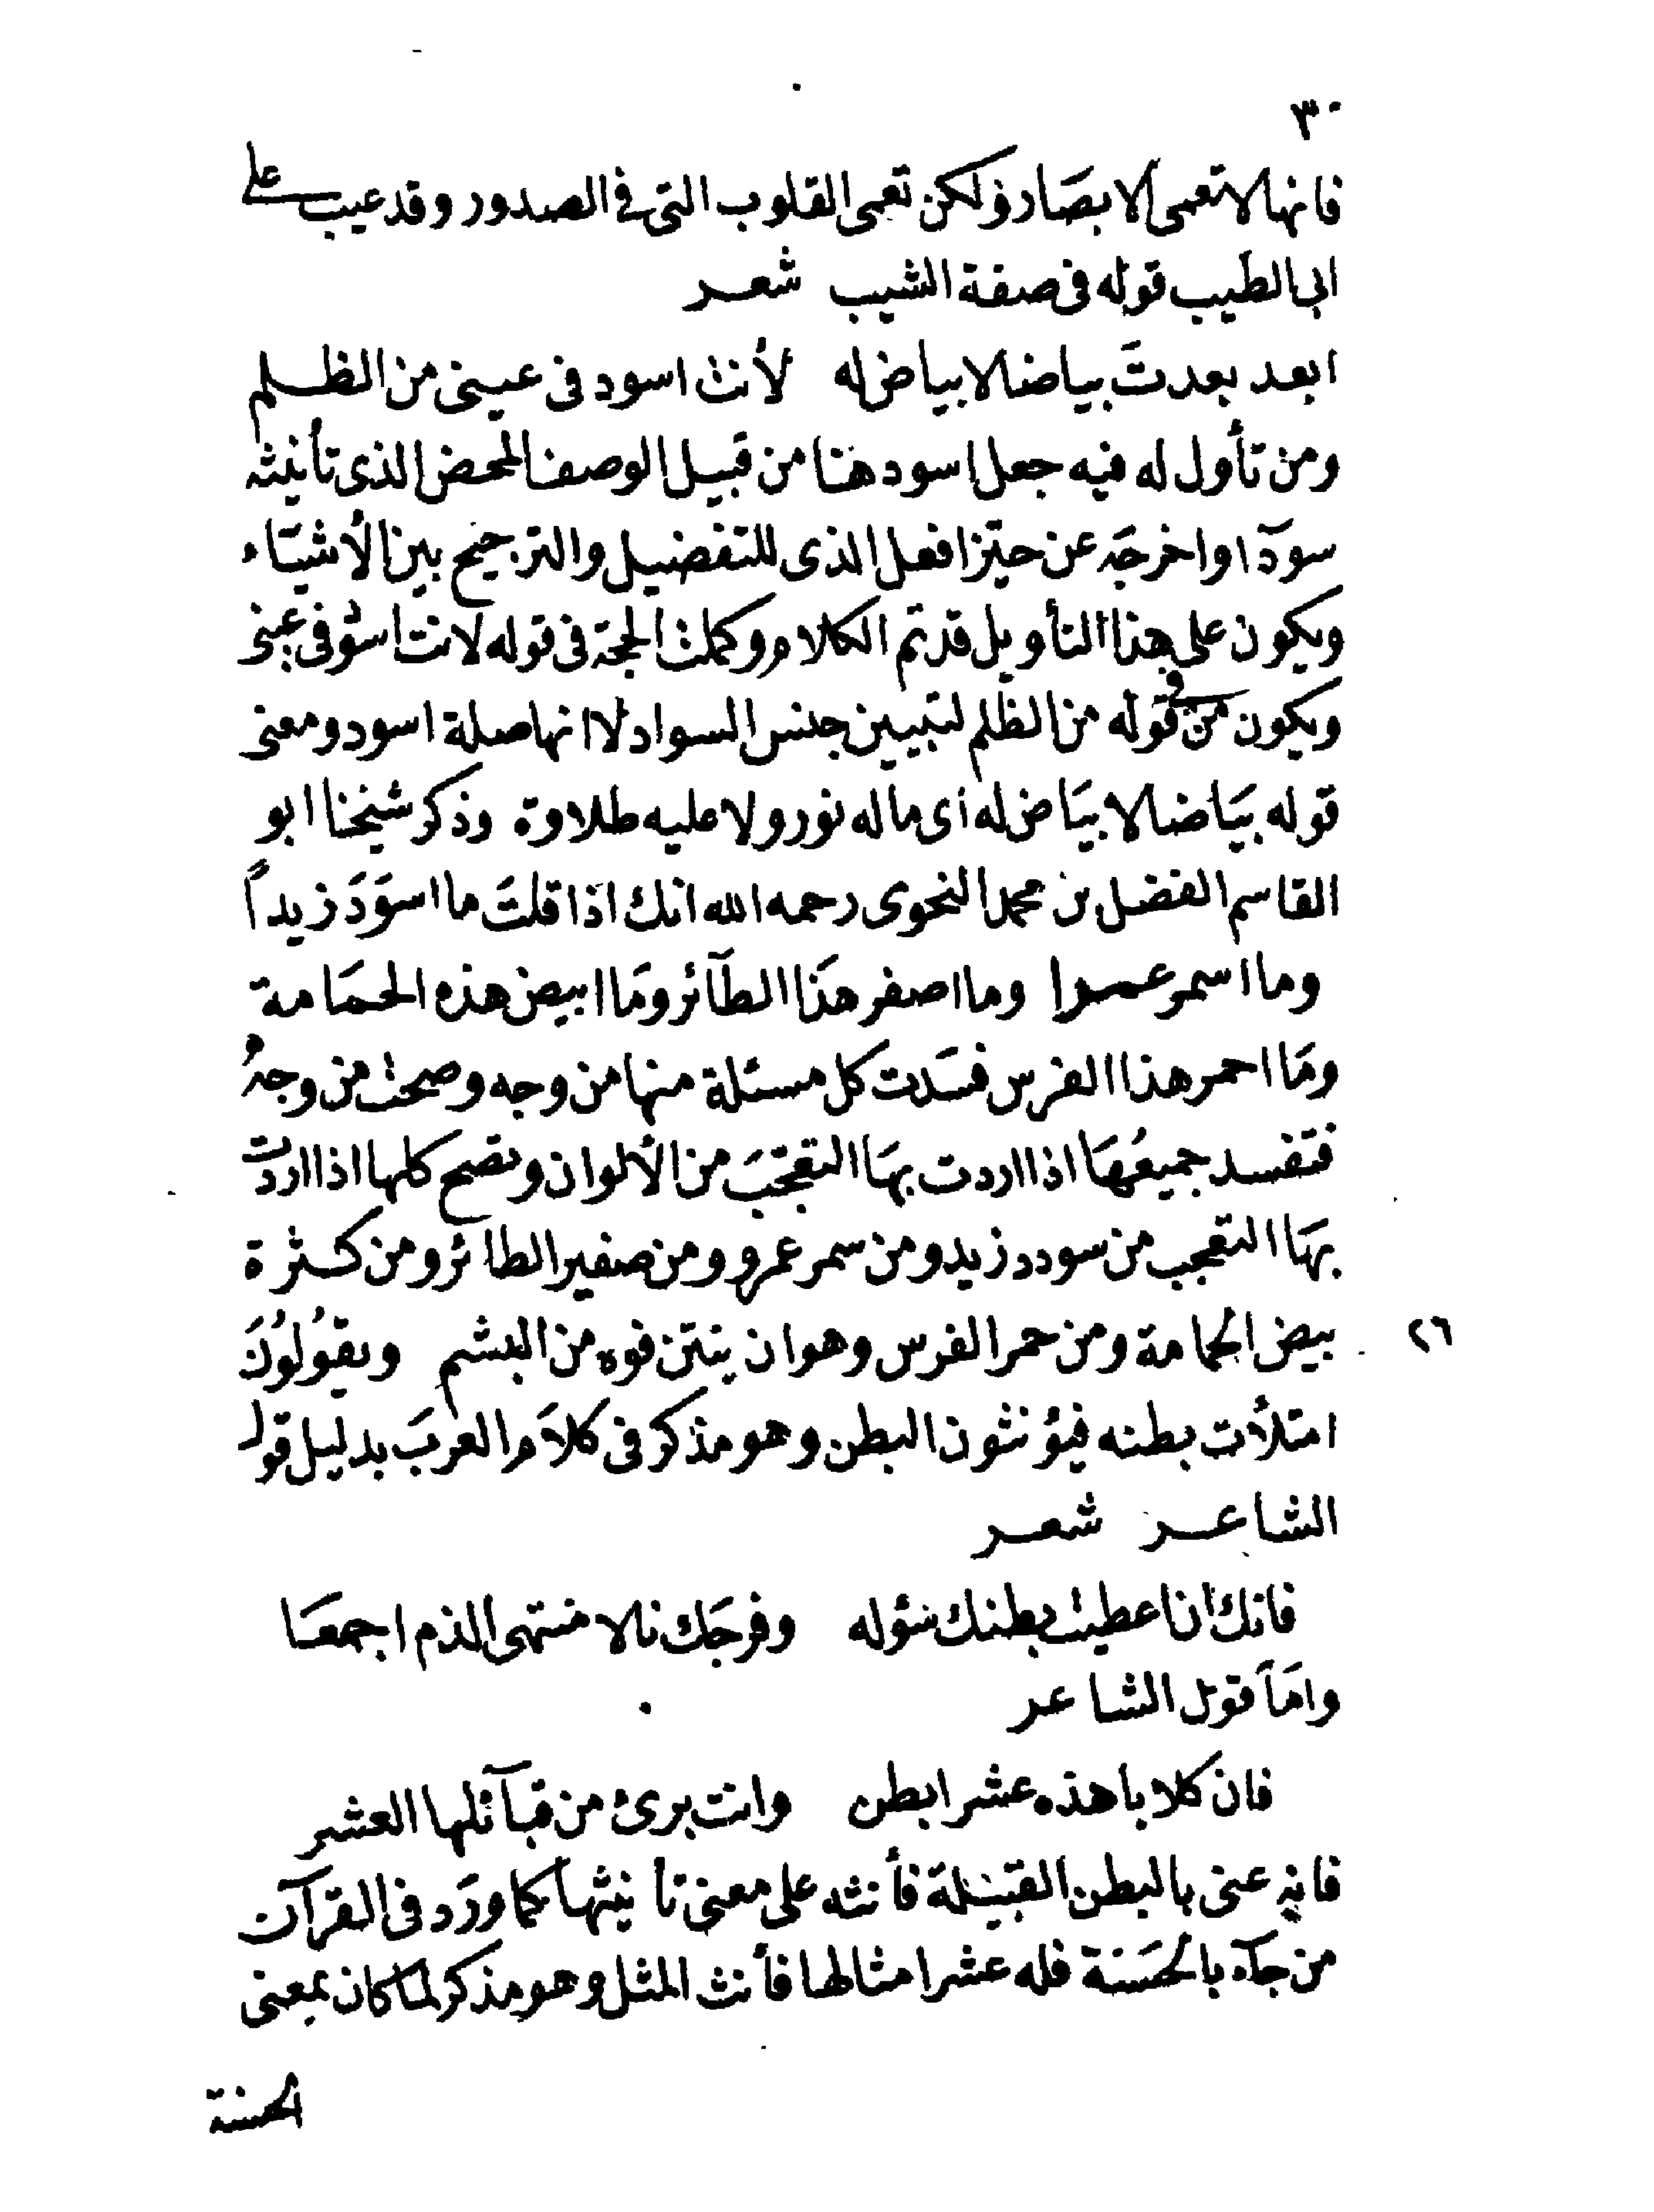 ٣٠
فانها لا تعمى الابصَار ولكن تعمى القلوب التى فى الصدور وقد عيب على
ابى الطيب قوله فى صفة الشيب شعر
ابعد بعدتَ بياضا لا بياض له لأنت اسود فى عينى من الظلم
ومن تأول له فيه جعل اسود هنا من قبيل الوصف المحض الذى تأنيثه
سودآ واخرجه عن حيّز افعل الذى للتفضيل والترجيح بين الأشيَاء
ويكون على هذا التأويل قد تم الكلام وكملت الحجة فى قوله لانت اسود فى عينى
ويكون من فى قوله من الظلم لتبيين جنس السواد لا انها صلة اسود ومعنى
قوله بيَاضا لا بيَاض له أى ما له نور ولا عليه طلاوة وذكر شيخنا ابو
القاسم الفضل بن محمد النحوى رحمه الله انك اذا قلتَ ما اسوَدَ زيداً
وما اسمر عمرا وما اصفر هذا الطآئر ومَا ابيض هذه الحمَامة
ومَا احمر هذا الفرس فسَدت كل مسئلة منها من وجه وصحت من وجهُ
فتفسد جميعُهَا اذا اردت بهَا التعجّبَ من الألوان وتصح كلها اذا اردت
بهَا التعجب من سودد زيد ومن سمر عمرو ومن صفير الطائر ومن كثرة
بيض الحمامة ومن حمر الفرس وهو ان ينتن فوه من البشم ويقوُلوُنَ
٢٦
امتلأت بطنه فيؤنثون البطن وهو مذكر فى كلاَم العربَ بدليل قول
الشاعر شعر
فانك ان اعطيت بطنك سؤله وفرجَك نالا منتهى الذم اجمعَا
وامَا قول الشاعر
فان كلابا هذه عشر ابطن وانت برئ من قبآئلها العشر
فانه عنى بالبطن القبيلة فأنثه على معنى تأنيثها كما ورَد فى القرآن
من جآء بالحسَنة فله عشر امثالها فأنث المثل وهو مذكر لما كان بمعنى
الحسنة